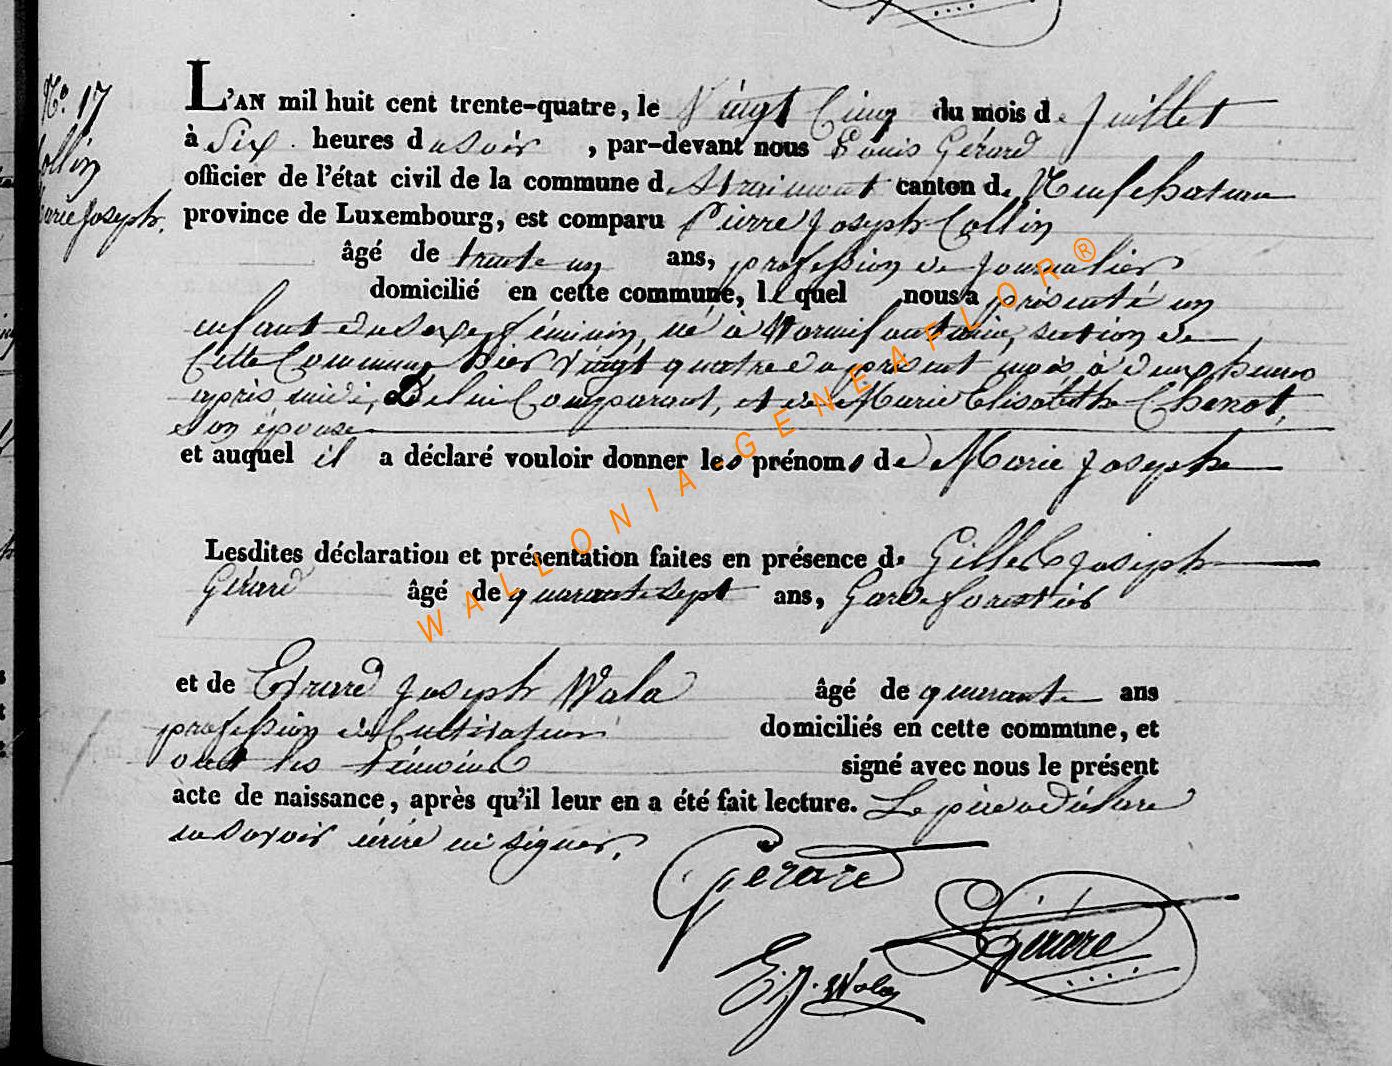 N.° 17
Collin
Marie Joseph.
L'AN mil huit cent trente-quatre, le Vingt Cinq du mois de Juillet
à Six heures du soir, par-devant nous Louis Gérard
officier de l'état civil de la commune de Straimont canton de Neufchateau
province de Luxembourg, est comparu Pierre Joseph Collin
âgé de trente un ans, profession de journalier
domicilié en cette commune, lequel nous a présenté un
enfant du sexe féminin, né à Warmifontaine, section de
Cette Commune hier vingt quatre du présent mois à deux heures
après midi, De lui Comparant, et de Marie Elisabeth Chenot,
son épouse
et auquel il a déclaré vouloir donner les prénoms de Marie Josephe
Lesdites déclaration et présentation faites en présence de Gilles Joseph
Gérard âgé de quarante sept ans, Garde forestier
et de Evrard Joseph Wala âgé de quarante ans
profession de Cultivateur domiciliés en cette commune, et
ont les témoins signé avec nous le présent
acte de naissance, après qu'il leur en a été fait lecture. Le père a déclaré
ne savoir écrire ni signer.
Gerard
Gérard
E. J. Wala
WALLONIA-GENEAFLOR®